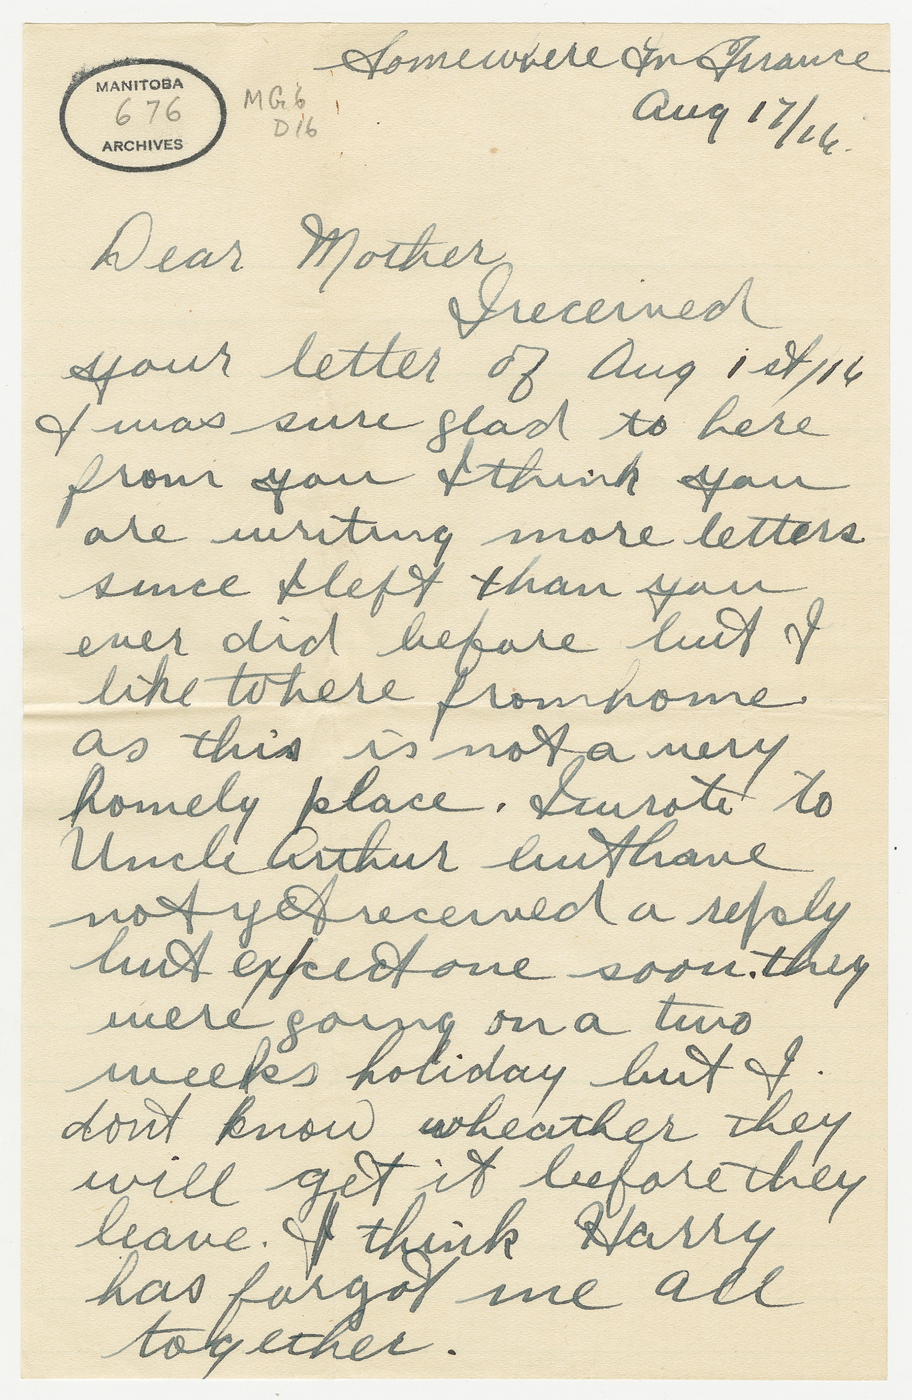 Somewhere In France
MANITOBA
676
ARCHIVES
MG6
D16
Aug 17/16.
Dear Mother
I received
your letter of Aug 1st/16
I was sure glad to here
from you I think you
are writing more letters
since I left than you
ever did before but I
like to here from home.
as this is not a very
homely place. I wrote to
Uncle Arthur but have
not yet received a reply
but expect one soon. they
were going on a two
weeks holiday but I.
dont know wheather they
will get it before they
leave. I think Harry
has forgot me all
together.